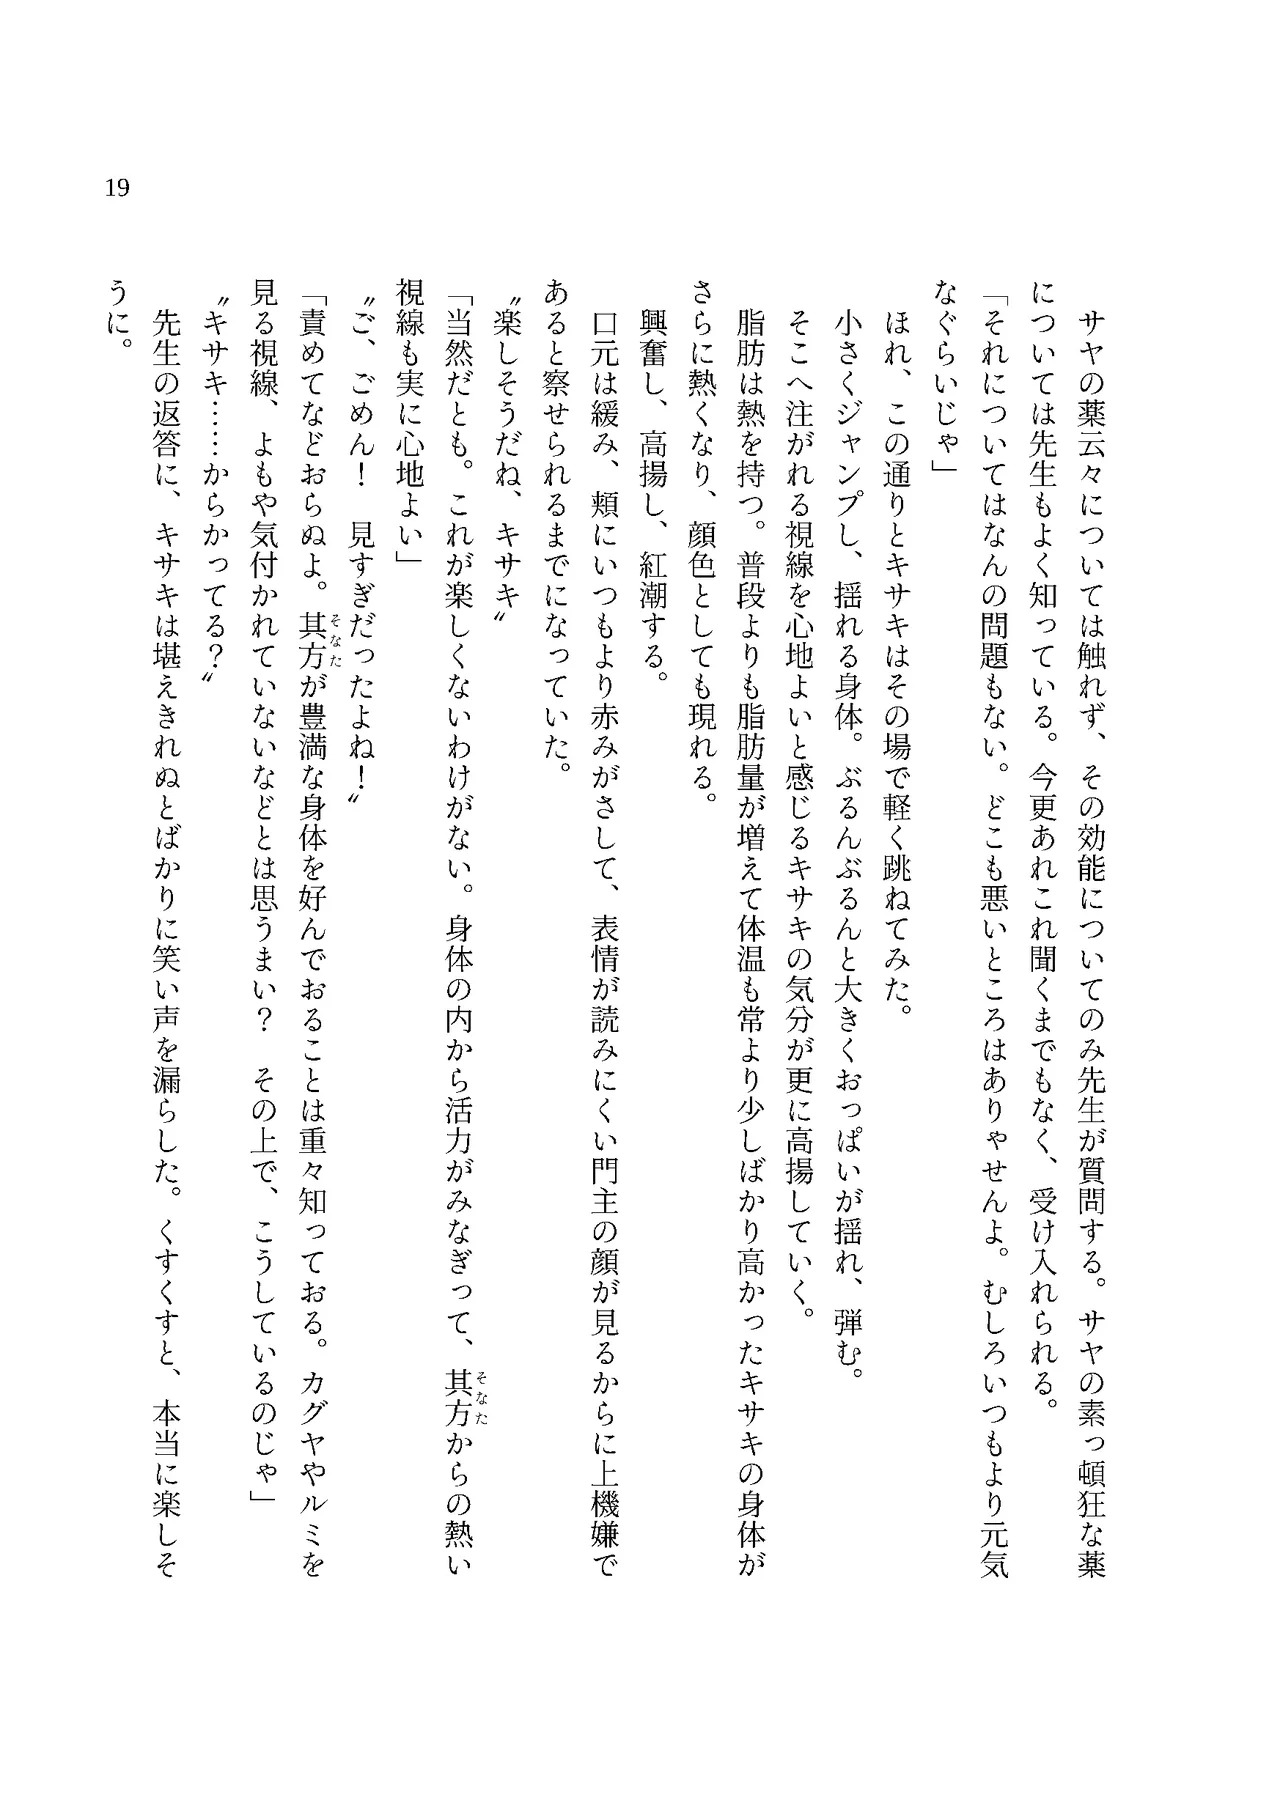 19
サヤの薬云々については触れず、その効能についてのみ先生が質問する。サヤの素っ頓狂な薬
については先生もよく知っている。今更あれこれ聞くまでもなく、受け入れられる。
「それについてはなんの問題もない。どこも悪いところはありゃせんよ。むしろいつもより元気
なぐらいじゃ」
ほれ、この通りとキサキはその場で軽く跳ねてみた。
小さくジャンプし、揺れる身体。ぶるんぶるんと大きくおっぱいが揺れ、弾む。
そこへ注がれる視線を心地よいと感じるキサキの気分が更に高揚していく。
脂肪は熱を持つ。普段よりも脂肪量が増えて体温も常より少しばかり高かったキサキの身体が
さらに熱くなり、顔色としても現れる。
興奮し、高揚し、紅潮する。
口元は緩み、頬にいつもより赤みがさして、表情が読みにくい門主の顔が見るからに上機嫌で
あると察せられるまでになっていた。
〝楽しそうだね、キサキ〟
「当然だとも。これが楽しくないわけがない。身体の内から活力がみなぎって、其方からの熱い
視線も実に心地よい」
〝ご、ごめん！　見すぎだったよね！〟
「責めてなどおらぬよ。其方が豊満な身体を好んでおることは重々知っておる。カグヤやルミを
見る視線、よもや気付かれていないなどとは思うまい？　その上で、こうしているのじゃ」
〝キサキ……からかってる？〟
先生の返答に、キサキは堪えきれぬとばかりに笑い声を漏らした。くすくすと、本当に楽しそ
うに。